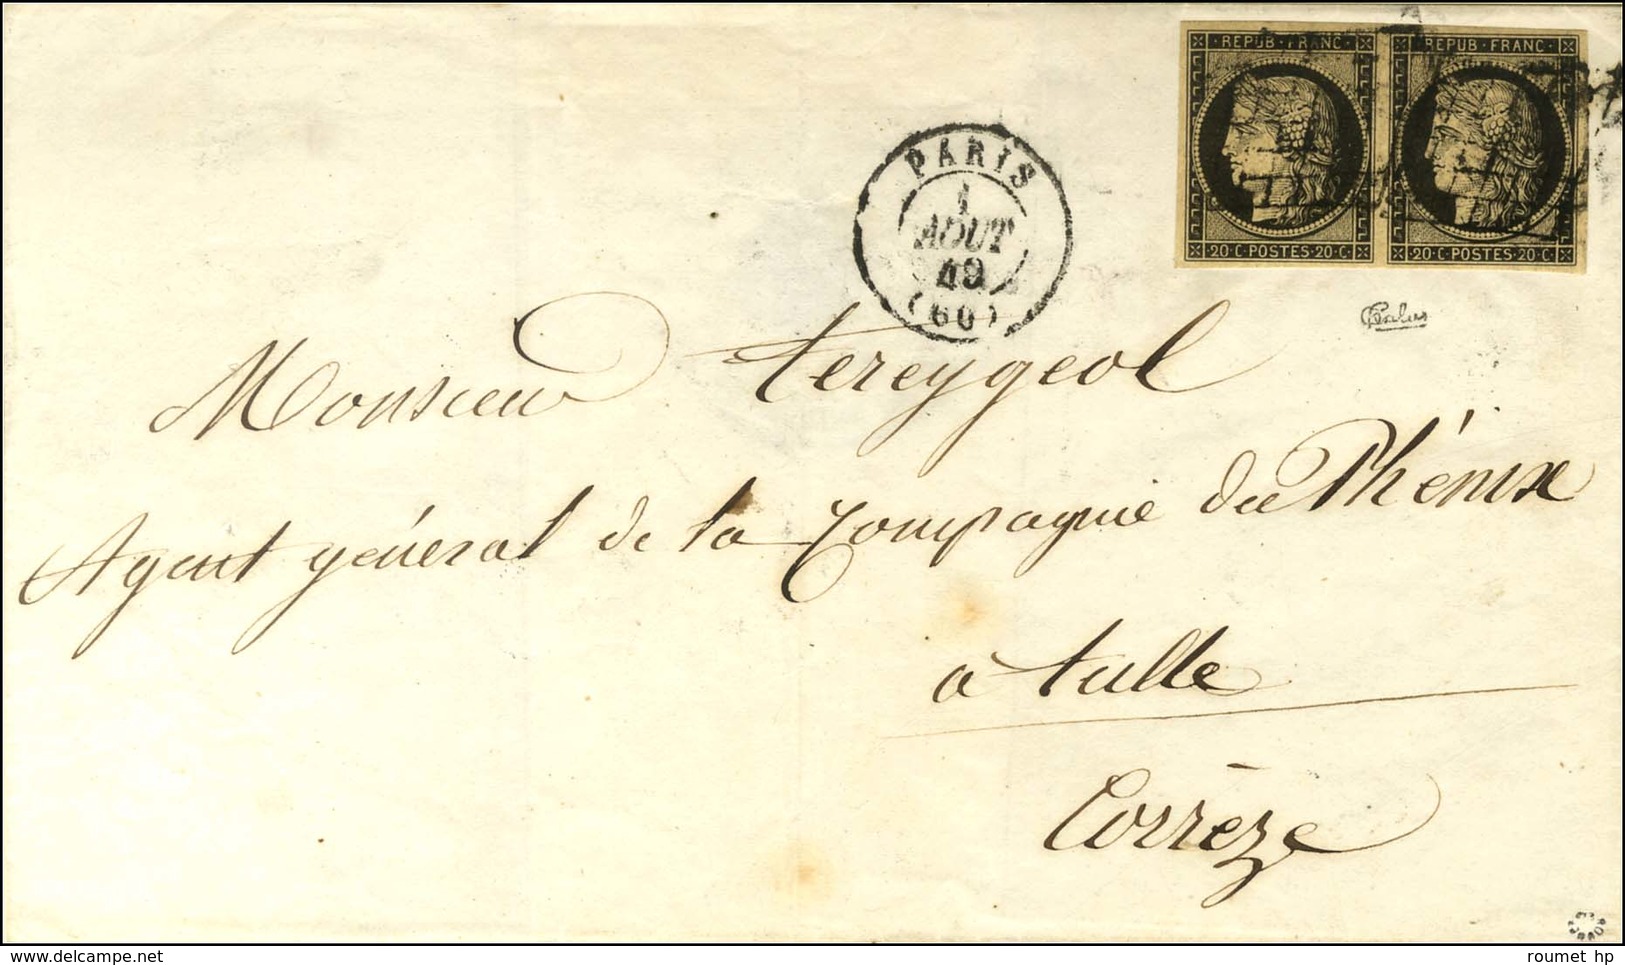 REPUB·FRANC·
REPUB·FRANC·
20·C·POSTES·20·C·
20·C·POSTES·20·C·
PARIS
1
AOUT
49
(60)
Calves
Monsieur tereygeol
Agent général de la Compagnie du Phénix
a tulle
Corrèze
roumet hp